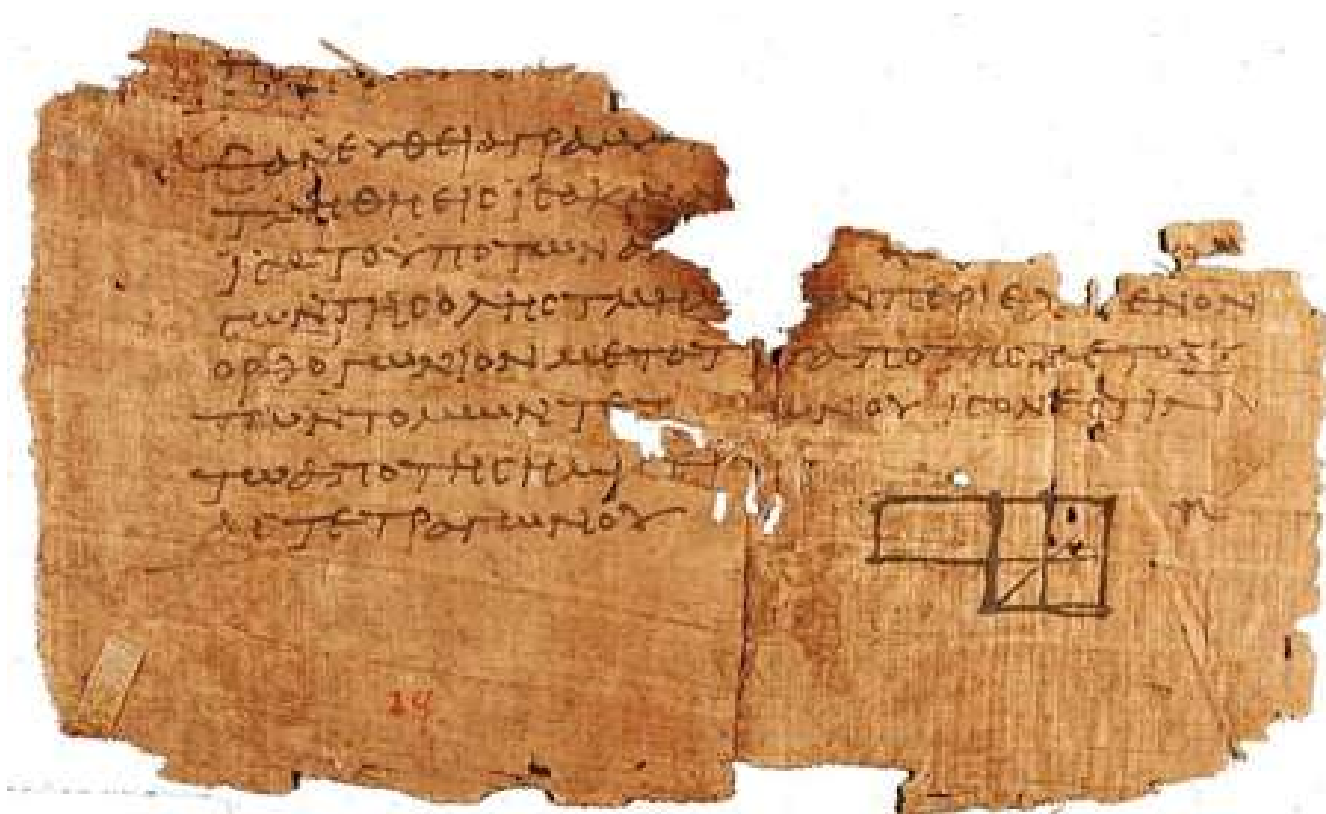 ΕΑΝΕΥΘΕΙΑΓΡΑΜΜ
ΤΜΗΘΗΕΙΣΙΣΑΚΑΙΑ
ΙΣΑΤΟΥΠΟΤΩΝΑ
ΜΩΝΤΗΣΟΛΗΣΤΜΗΜ ΩΝΠΕΡΙΕΧ ΜΕΝΟΝ
ΟΡΘΟΓΩΝΙΟΝΜΕΤΑΤ ΑΠΟΤΗΣΜΕΤΟΞΥ
ΤΩΝΤΟΜΩΝΤΕΤ ΩΝΟΥΙΣΟΝΕΣΤΙΝ
ΤΩΑΠΟΤΗΣΗΜΙΣ
ΑΣΤΕΤΡΑΓΩΝΟΥ
24